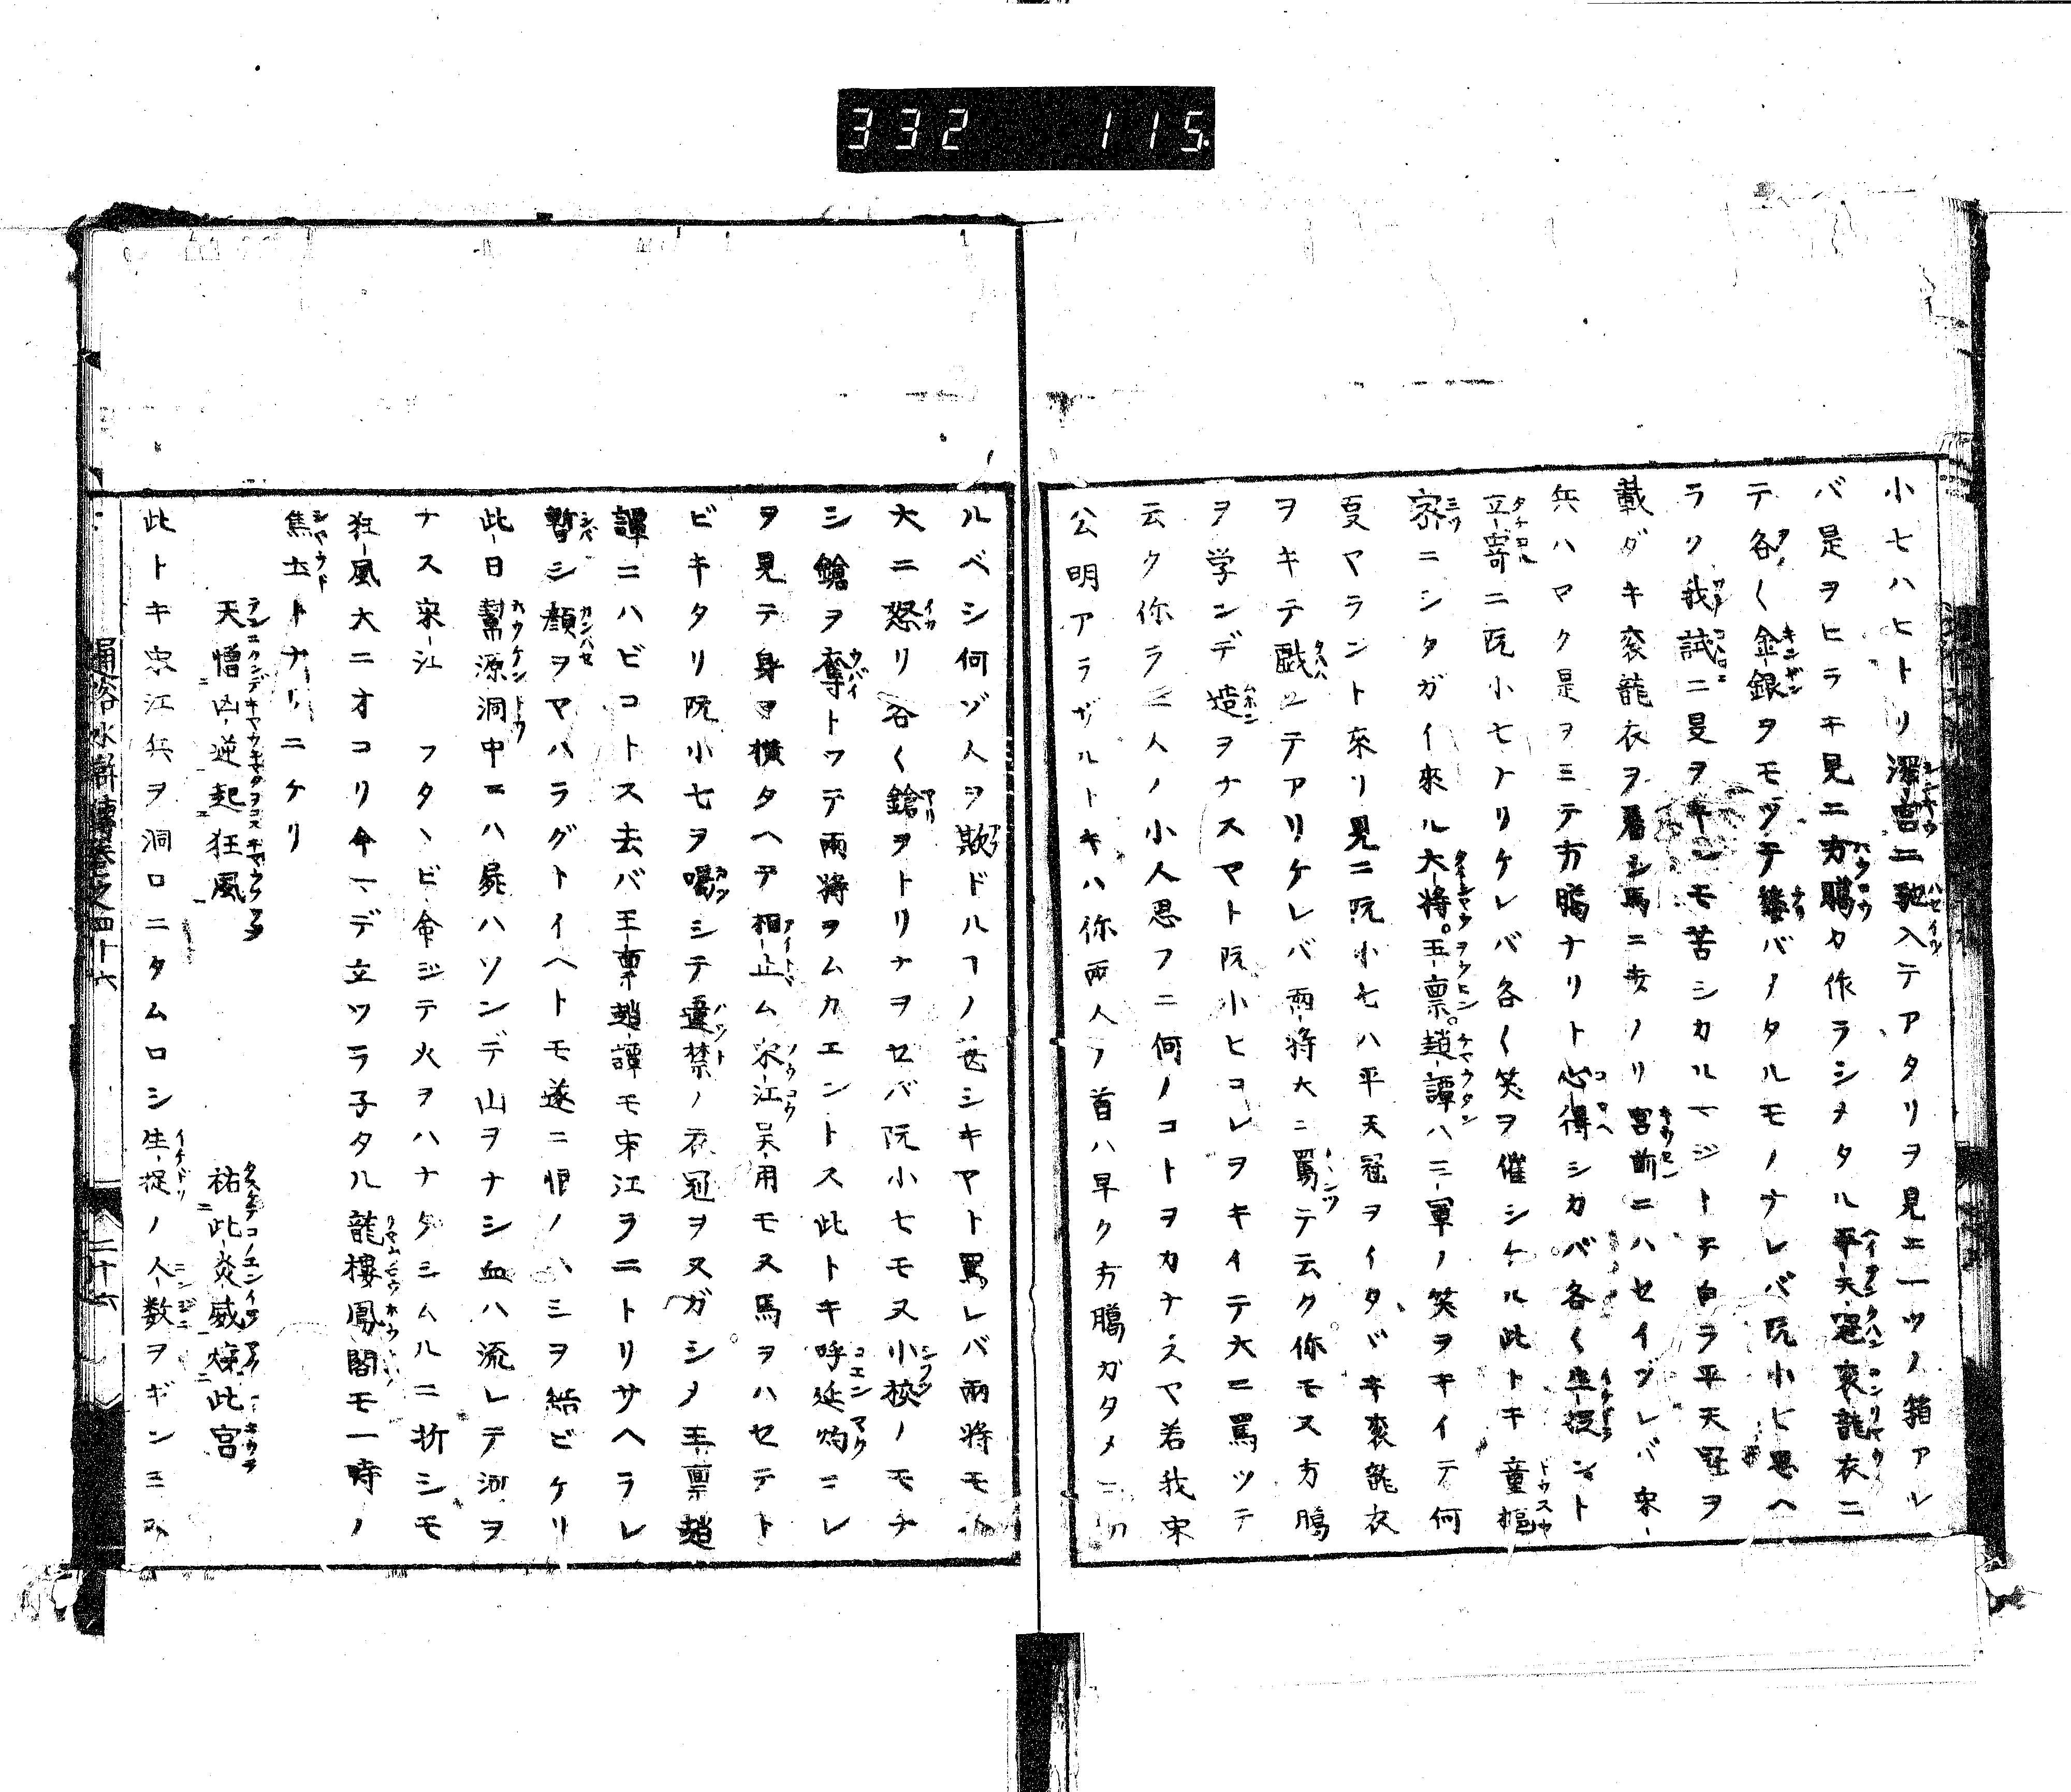 332 115
小七ハヒトリ深宮ニ馳入テアタリヲ見ニ一ツノ箱アル
バ是ヲヒラキ見ニ方臘カ作ラシメタル平天冠衮龍衣ニ
テ各〱金銀ヲモツテ鏤バメタルモノナレバ阮小七思ヘ
ラク我試ニ是ヲキルモ苦シカルマジトテ自ラ平天冠ヲ
載ダキ衮龍衣ヲ着シ馬ニ打ノリ宮前ニハセイヅレバ宋
兵ハマタ是ヲミテ方臘ナリト心得シカバ各〱生捉ント
立寄ニ阮小七ナリケレバ各〱笑ヲ催シケル此トキ童樞
密ニシタガイ來ル大將王禀趙譚ハ三軍ノ笑ヲキイテ何
夏ヤラント來リ見ニ阮小七ハ平天冠ヲイタヾキ衮龍衣
ヲキテ戯レテアリケレバ兩將大ニ罵テ云ク你モ又方臘
ヲ学ンデ造ヲナスヤト阮小七コレヲキイテ大ニ罵ツテ
云ク你ラ二人ノ小人思フニ何ノコトヲカナスヤ若我宋
公明アラザルトキハ你兩人ノ首ハ早ク方臘ガタメニ切
ルベシ何ゾ人ヲ欺ドルフノ甚シキヤト罵レバ兩將モ
大ニ怒リ各〱鎗ヲトリナヲセバ阮小七モ又小校ノモチ
シ鎗ヲ奪トツテ兩將ヲムカエントス此トキ呼延灼コレ
ヲ見テ身ヲ横タヘテ相止ム宋江吴用モ又馬ヲハセテト
ビキタリ阮小七ヲ喝シテ違禁ノ衣冠ヲヌガシメ王禀趙
譚ニハビコトス去バ王禀趙譚モ宋江ヲニトリサヘラレ
暫シ顔ヲヤハラグトイヘトモ遂ニ恨ノハシヲ結ビケリ
此日幇源洞中ニハ屍ハツンデ山ヲナシ血ハ流レテ河ヲ
ナス宋江フタヽビ命ジテ火ヲハナタシムルニ折シモ
狂風大ニオコリ今マデ立ツラ子タル龍樓鳳閣モ一時ノ
焦土トナリニケリ
天憎凶逆起狂風 祐此炎威燒此宮
此トキ宋江兵ヲ洞口ニタムロシ生捉ノ人数ヲギンミ
通俗水滸傳巻之四十六 二十六